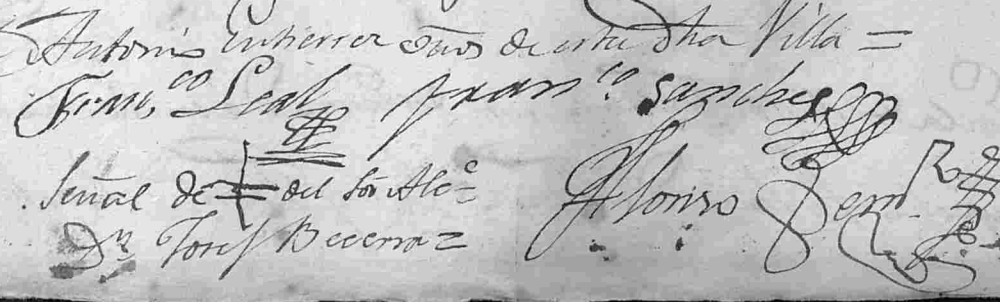 Antonio Gutierrez vnos de esta dha Villa =
Fran,co Leal fran.co Sanches
Señal de + del Sor Alce
Dn Josef Becerra =
Alonso